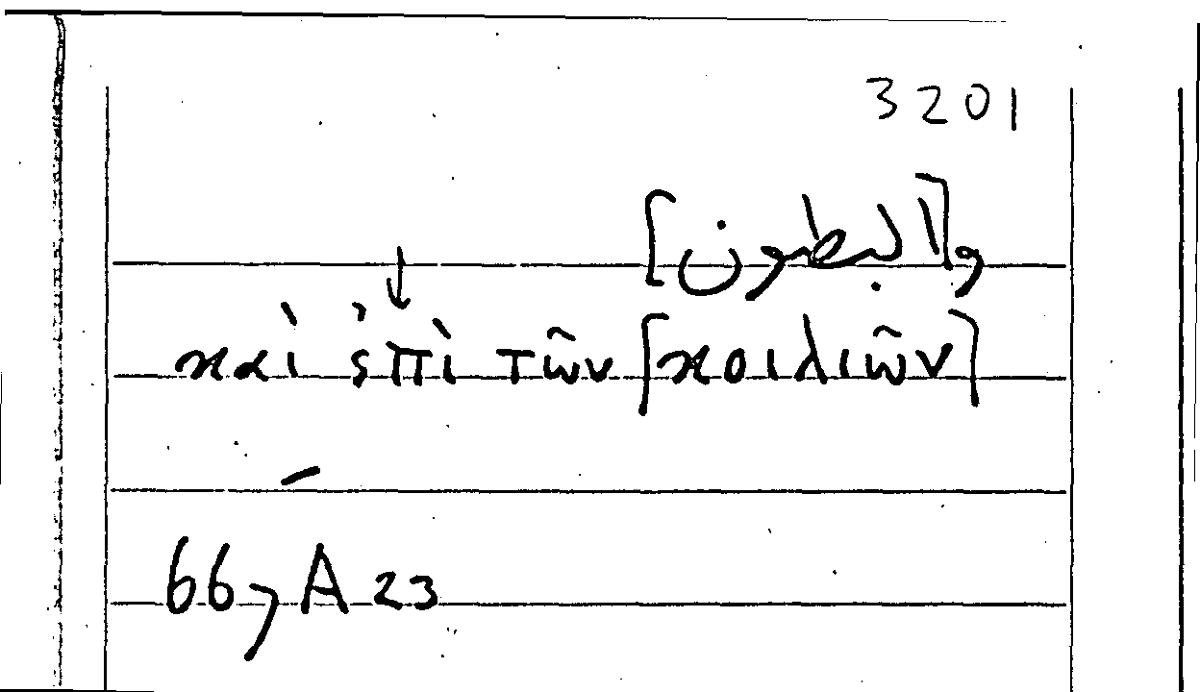 3201
و[البطون]
καὶ ἐπὶ τῶν [κοιλιῶν]
66, A 23